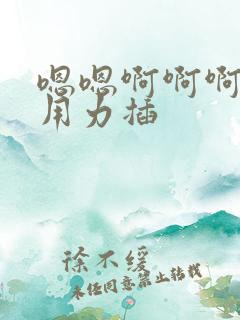 嗯嗯啊啊啊
用力插
徐不缓
未经同意禁止转载